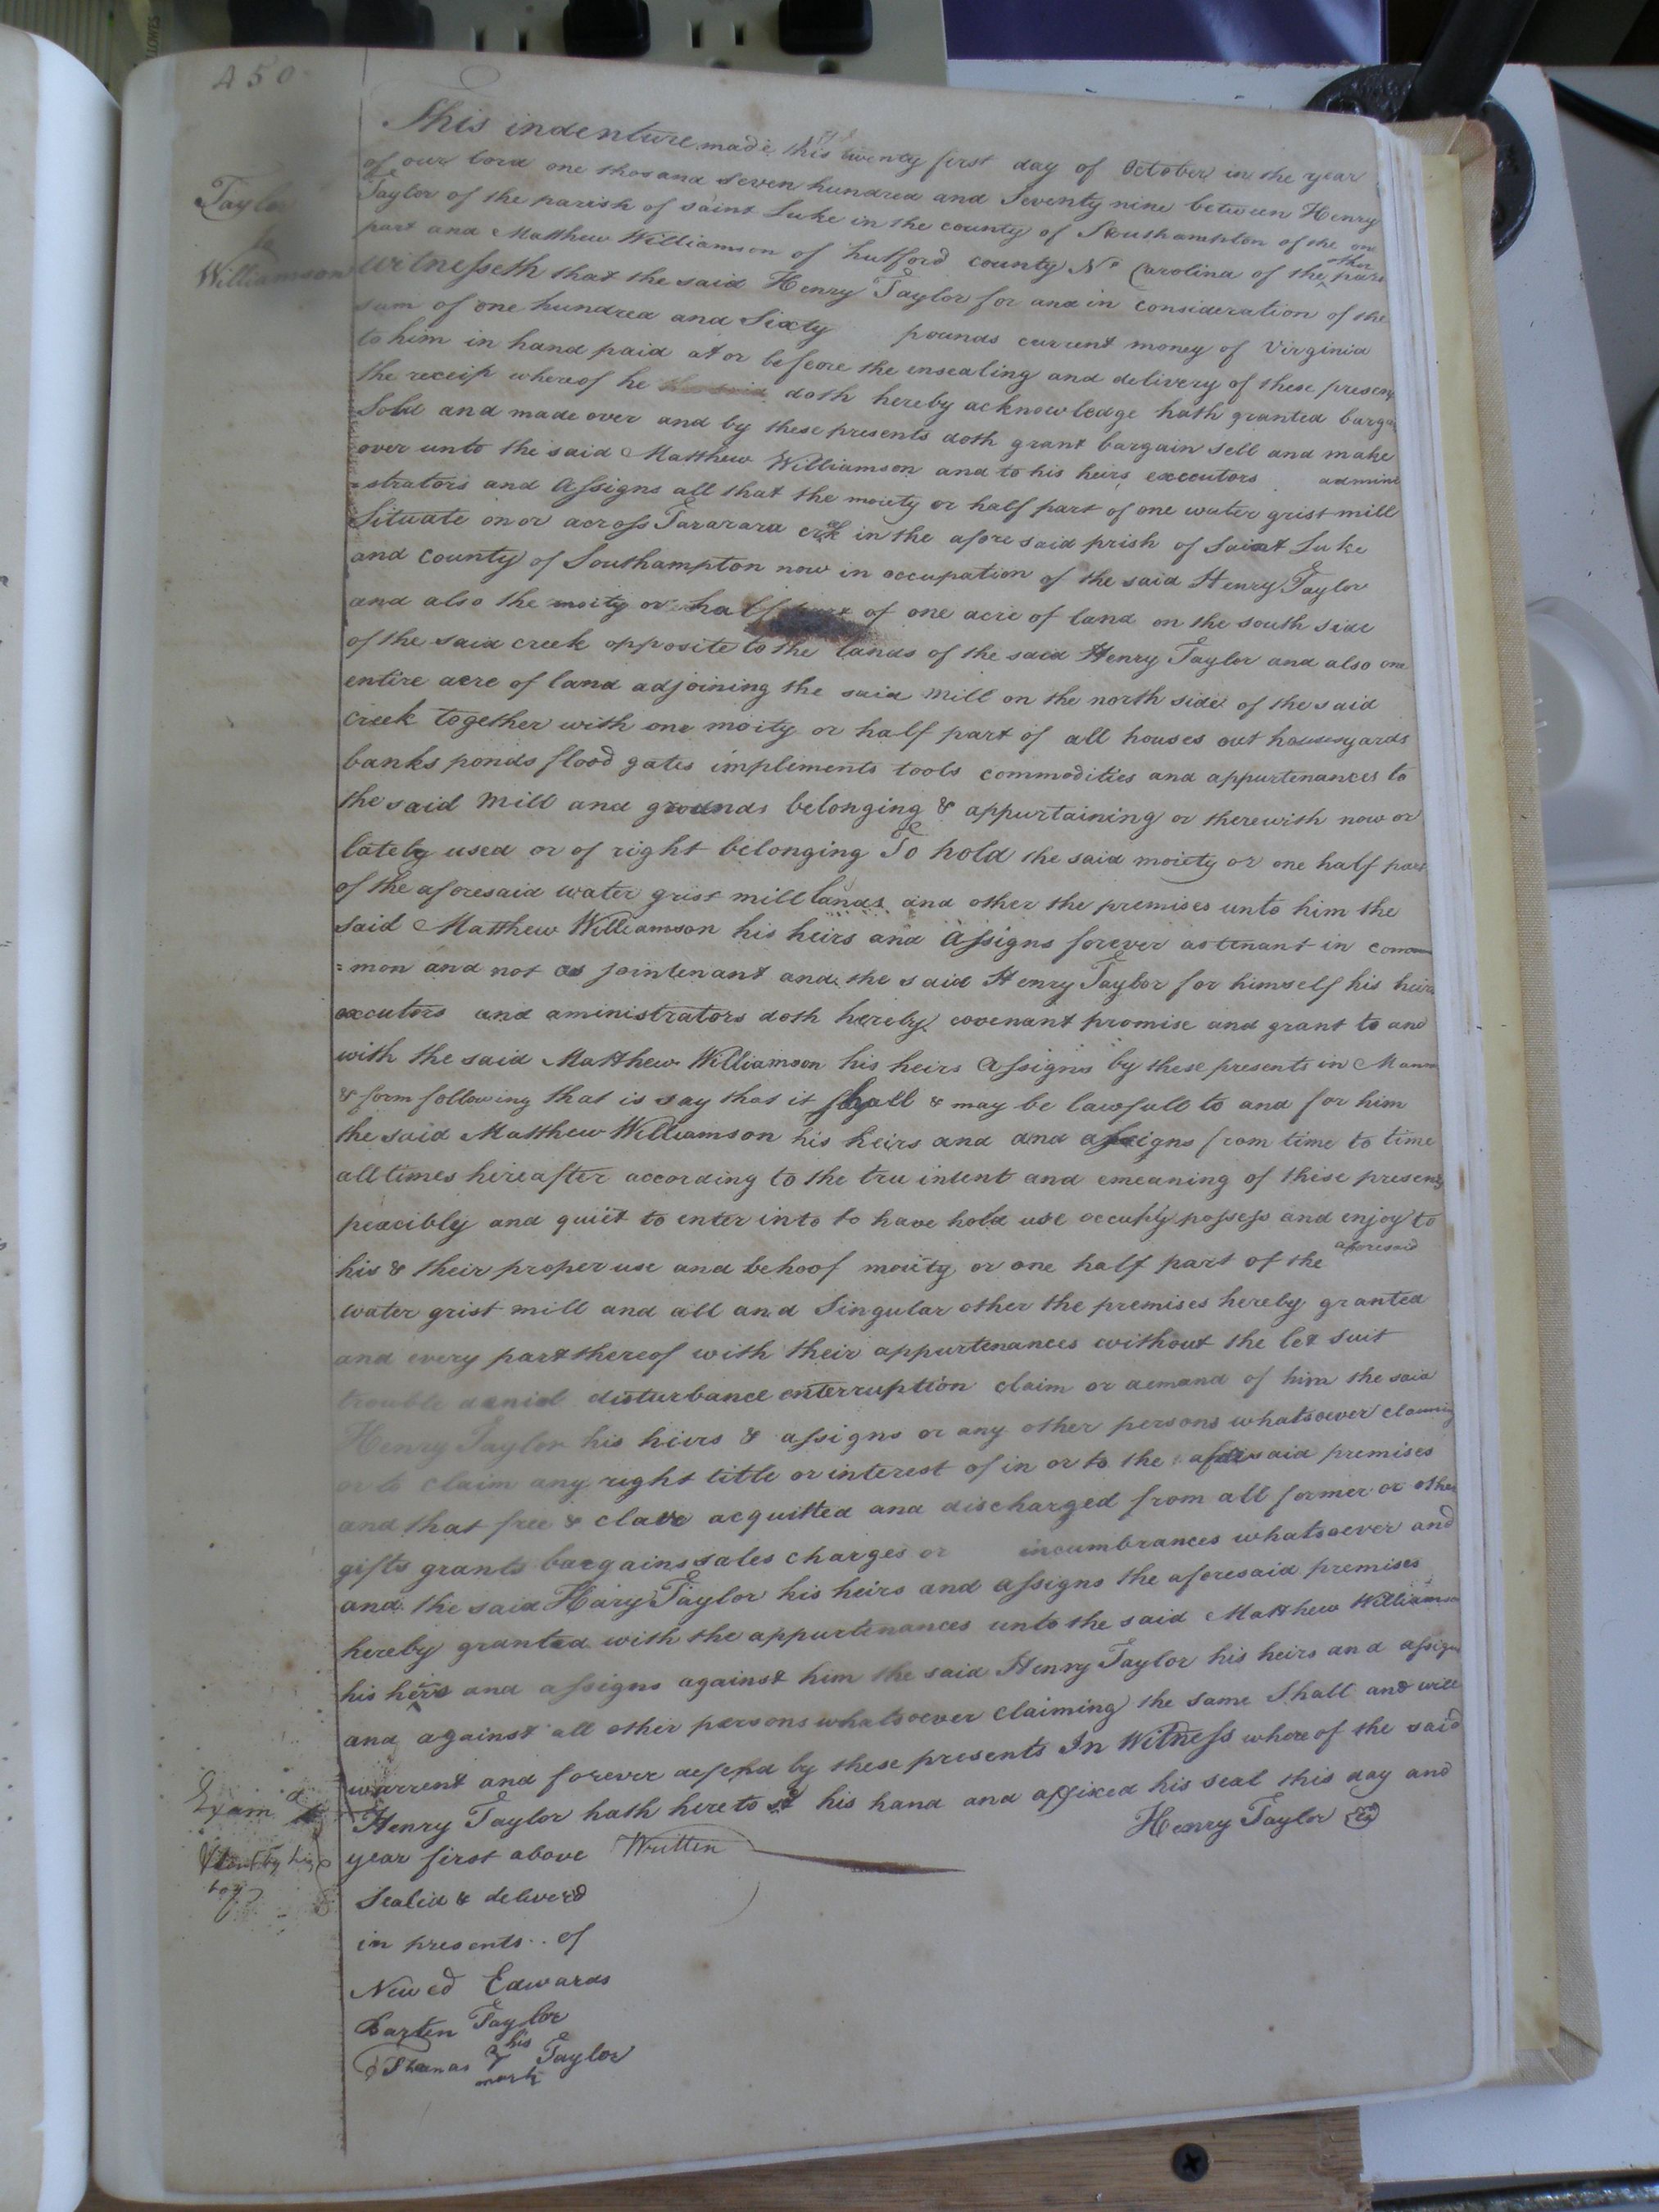 450
Taylor
to
Williamson
This indenture made this twenty first day of October in the year
of our lord one thosand seven hundred and Seventy nine between Henry
Taylor of the parish of saint Luke in the county of Southampton of the one
part and Matthew Williamson of hutford county No Carolina of the other part
witnesseth that the said Henry Taylor for and in consideration of the
sum of one hundred and Sixty pounds current money of Virginia
to him in hand paid at or before the ensealing and delivery of these presents
the receip whereof he the said doth hereby acknowledge hath granted barga
Sold and made over and by these presents doth grant bargain sell and make
over unto the said Matthew Williamson and to his heirs executors admini
=strators and assigns all that the moiety or half part of one water grist mill
Situate on or across Tararara in the afore said prish of Saint Luke
and County of Southampton now in occupation of the said Henry Taylor
and also the moity or half part of one acre of land on the south side
of the said creek opposite to the lands of the said Henry Taylor and also one
entire acre of land adjoining the said mill on the north side of the said
Creek together with one moity or half part of all houses out houses yards
banks ponds flood gates impliments tools commodities and appurtenances to
the said mill and grounds belonging & appurtaining or therewith now or
lately used or of right belonging To hold the said moiety or one half part
of the aforesaid water grist mill lands and other the premises unto him the
said Matthew Williamson his heirs and assigns forever as tenant in com
=mon and not as jointenant and the said Henry Taylor for himself his heirs
executors and aministrators doth hereby covenant promise and grant to and
with the said Matthew Williamson his heirs assigns by these presents in Mann
& form following that is say that it shall & may be lawfull to and for him
the said Matthew Williamson his heirs and and assigns from time to time
all times hereafter according to the tru intent and emeaning of these presents
peacibly and quiit to enter into to have hold use occupy possess and enjoy to
his & their proper use and behoof moiity or one half part of the aforesaid
water grist mill and all and Singular other the premises hereby granted
and every part thereof with their appurtenances without the let suit
trouble danial disturbance enterruption claim or demand of him the said
Henry Taylor his heirs & assigns or any other persons whatsoever claiming
or to claim any right title or interest of in or to the aforesaid premises
and that free & clare acquitted and discharged from all former or other
gifts grants bargains sales charges or incumbrances whatsoever and
and the said Hary Taylor his heirs and assigns the aforesaid premises
hereby granted with the appurtenances unto the said Matthew Williamson
his heirs and assigns against him the said Henry Taylor his heirs and assigns
and against all other persons whatsoever claiming the same Shall and will
warrent and forever defend by these presents In Witness whereof the said
Henry Taylor hath here to set his hand and affixed his seal this day and
year first above Written
Henry Taylor
Exam
Sealed & deliverd
in presents of
Newed Edwards
Barten Taylor
Thomas his Taylor
mark